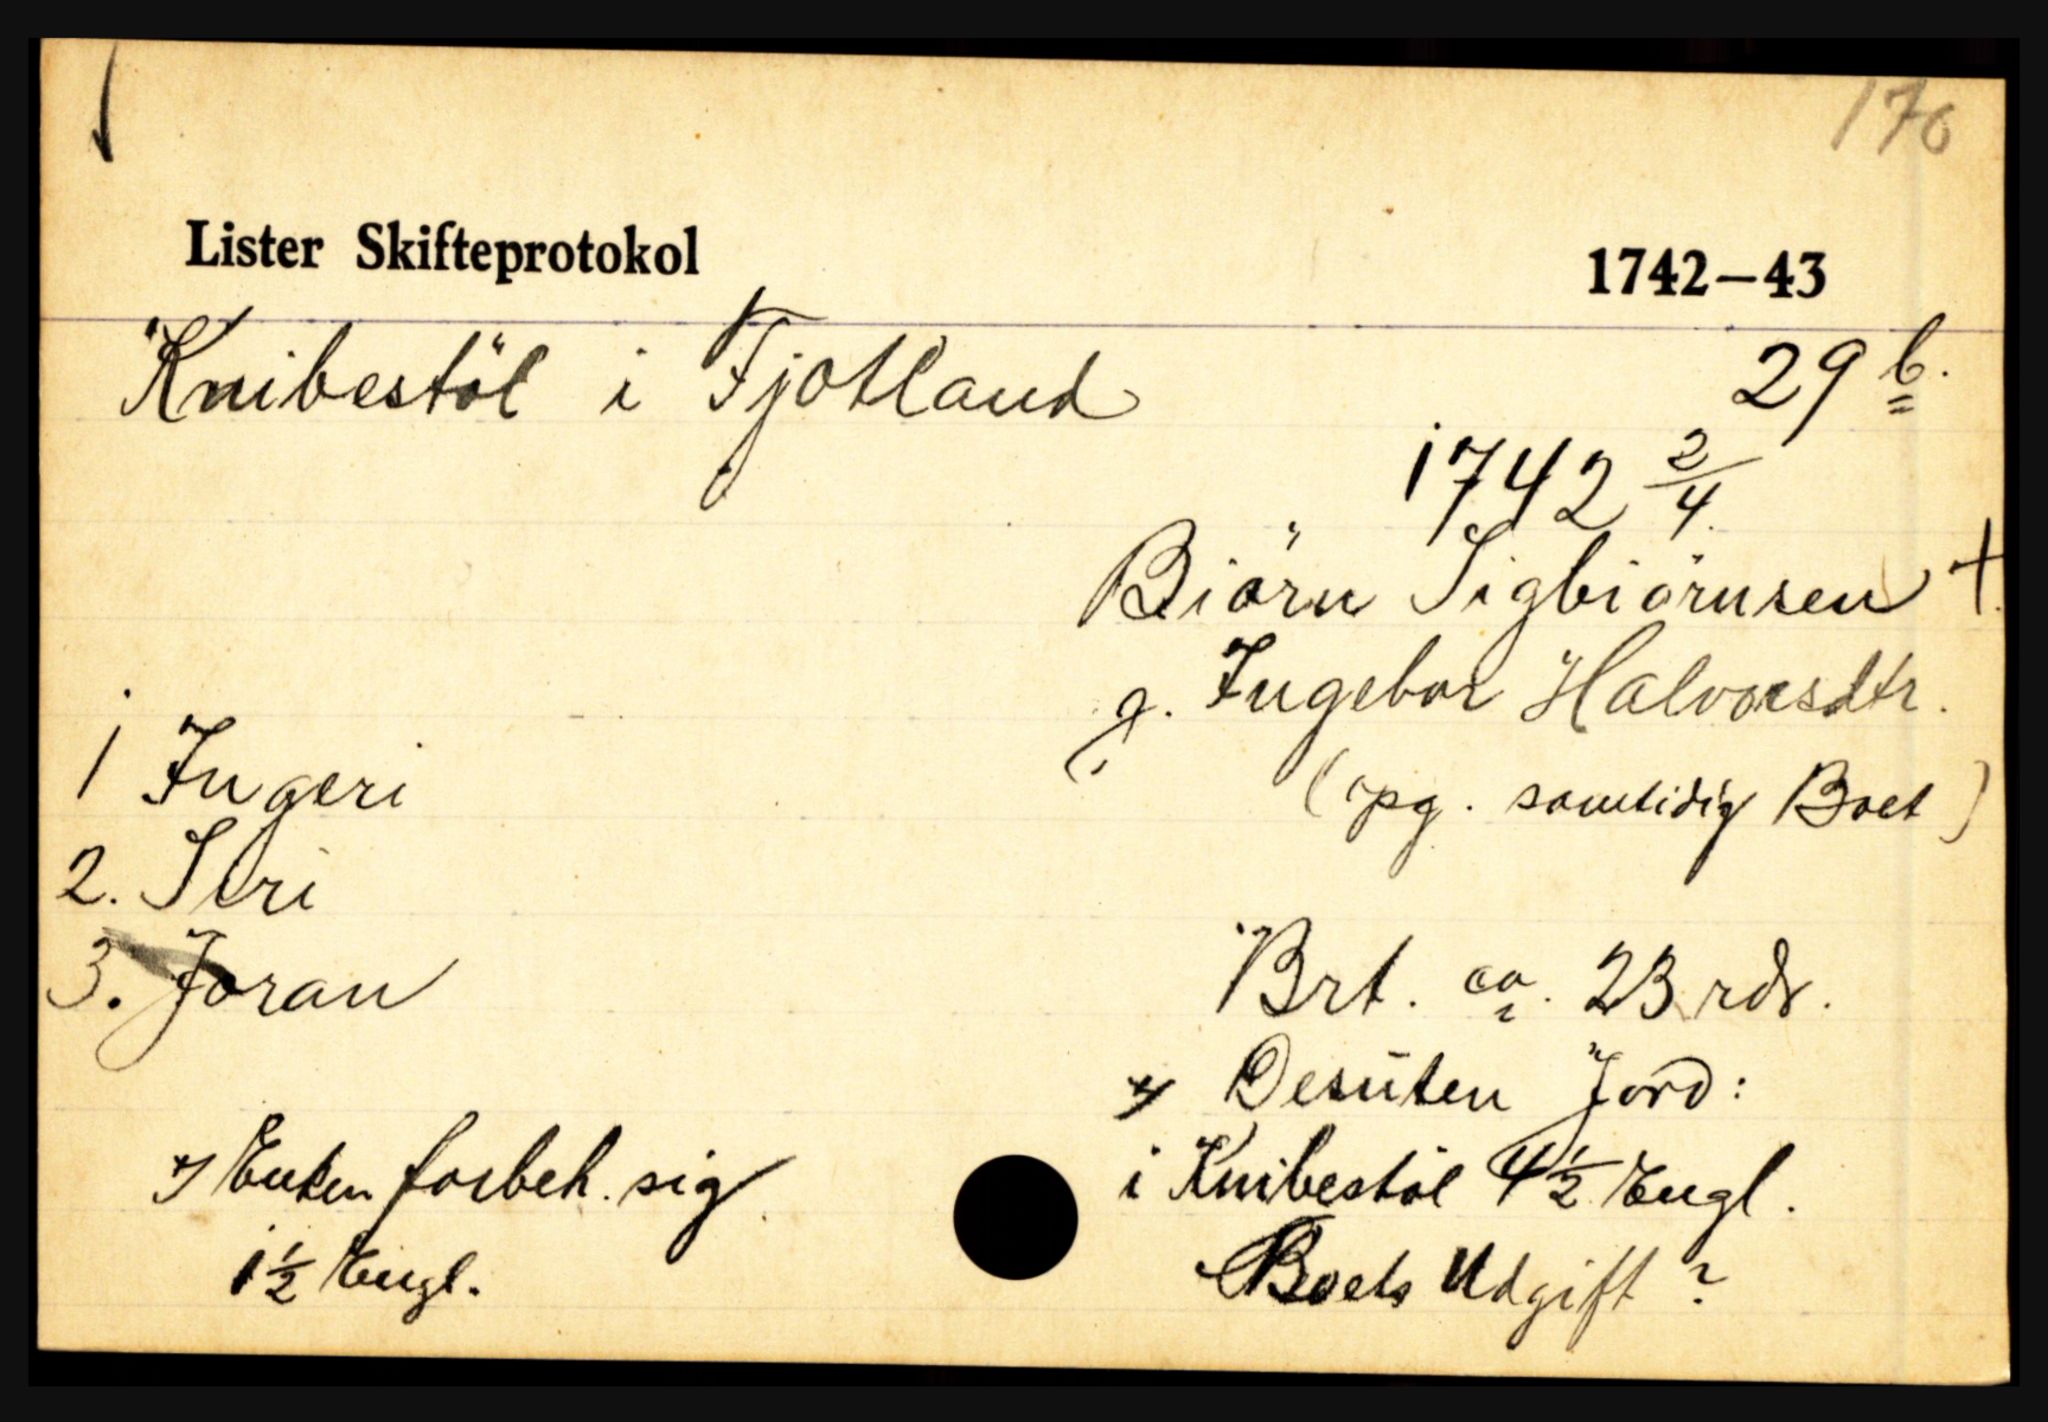 170
Lister Skifteprotokol 1742–43
Knibestöl i Fjotland 29 b.
1742 2/4.
Biörn Sigbiörnsen +
g. Ingebor Halvorsdtr.
1 Ingeri
samtidig Boet)
2. Siri
3. Joran
Brt. ca. 23 rdr.
Desuten Jord:
Enken forbeh. sig
i Knibestöl 4 1/2 Engl.
1 1/2 Engl.
Boets Udgift ?